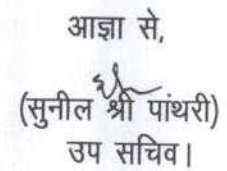 आज्ञा से,
(सुनील श्री पांथरी)
उप सचिव।